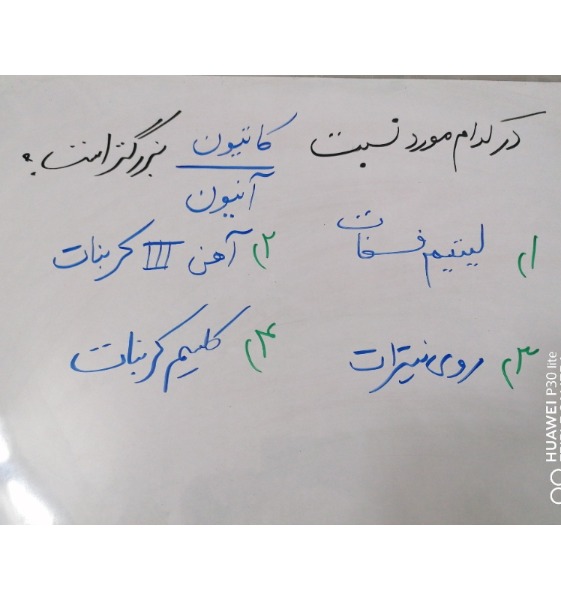 در کدام مورد نسبت کاتیون / آنیون بزرگتر است؟
۱) لیتیم فسفات
۲) آهن III کربنات
۳) روی نیترات
۴) کلسیم کربنات
HUAWEI P30 lite